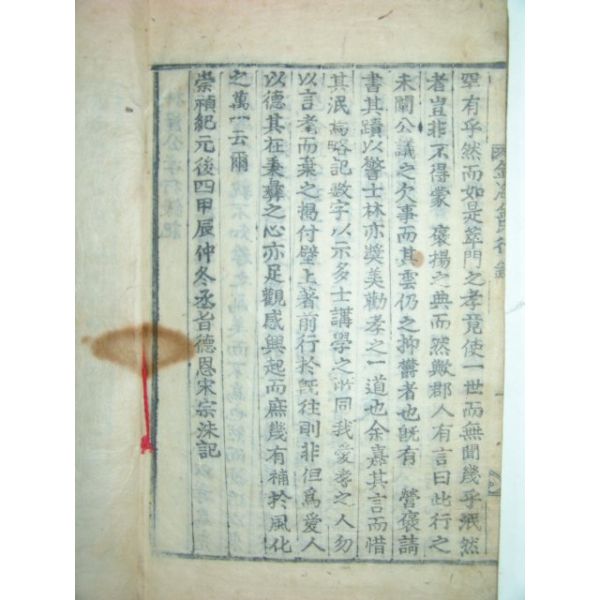 罕有乎然而如是萃門之孝竟使一世而無聞幾乎泯然
者豈非不得蒙 褒揚之典而然歟郡人有言曰此行之
未闡公議之欠事而其雲仍之抑欝者也旣有 營褒請
書其蹟以警士林亦獎美勸孝之一道也余嘉其言而惜
其泯焉略記數字以示多士講學之所同我愛孝之人勿
以言耄而棄之揭付壁上著前行於旣往則非但爲愛人
以德其在秉彛之心亦足觀感興起而庶幾有補於風化
之萬一云爾
崇禎紀元後四甲辰仲冬丞旨德恩宋宗洙記